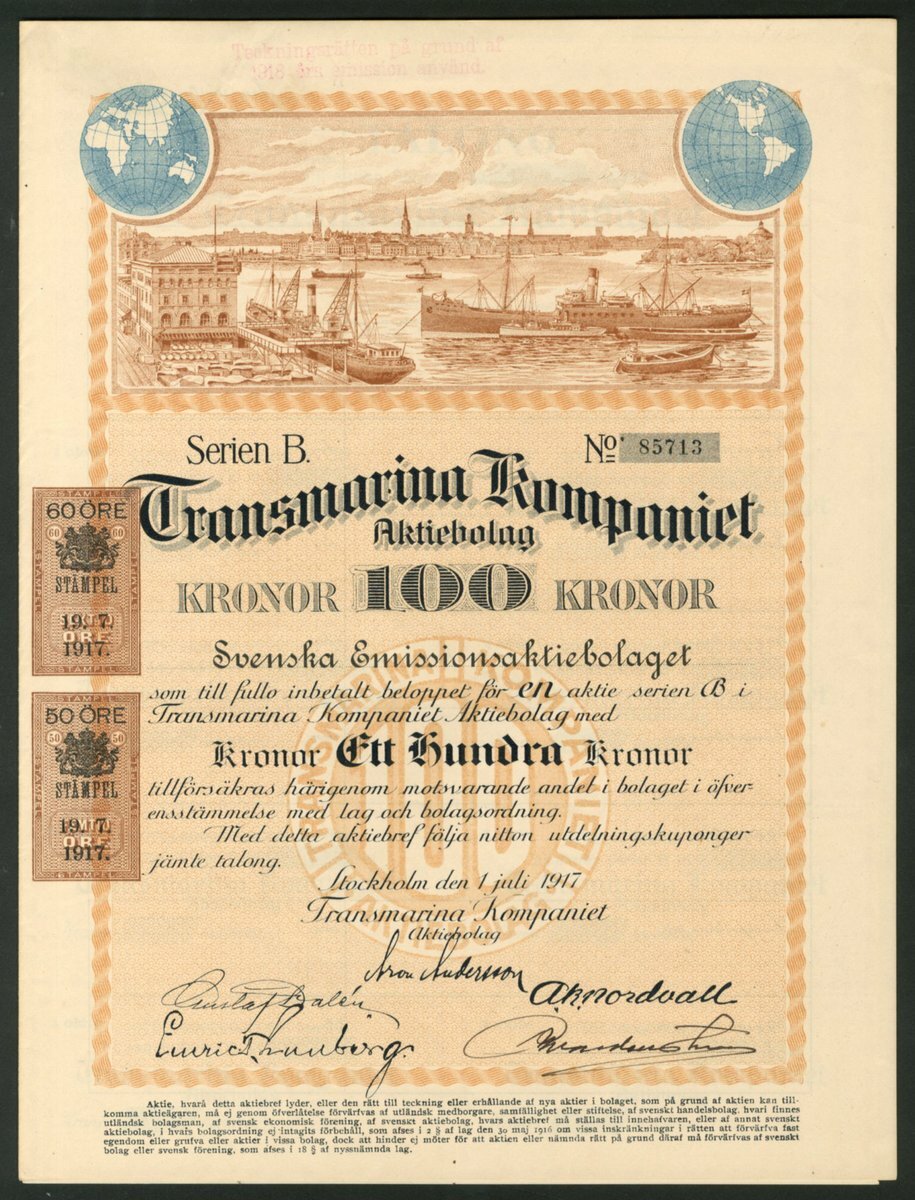 Teckningsrätten på grund af
1918 års emission använd.
Serien B.
No. 85713
Transmarina Kompaniet
Aktiebolag
KRONOR 100 KRONOR
Svenska Emissionsaktiebolaget
som till fullo inbetalt beloppet för en aktie serien B i
Transmarina Kompaniet Aktiebolag med
Kronor Ett Hundra Kronor
tillförsäkras härigenom motsvarande andel i bolaget i öfver-
ensstämmelse med lag och bolagsordning.
Med detta aktiebref följa nitton utdelningskuponger
jämte talong.
Stockholm den 1 juli 1917
Transmarina Kompaniet
Aktiebolag
Aron Andersson
Gustaf Dalén
A.K. Nordvall
Emric Thunberg.
STÄMPEL
60 ÖRE
60 60
STÄMPEL
19. 7.
ÖRE
1917.
STÄMPEL
50 ÖRE
50 50
STÄMPEL
19. 7.
ÖRE
1917.
STÄMPEL
Aktie, hvarå detta aktiebref lyder, eller den rätt till teckning eller erhållande af nya aktier i bolaget, som på grund af aktien kan till-
komma aktieägaren, må ej genom öfverlåtelse förvärfvas af utländsk medborgare, samfällighet eller stiftelse, af svenskt handelsbolag, hvari finnes
utländsk bolagsman, af svensk ekonomisk förening, af svenskt aktiebolag, hvars aktiebref må ställas till innehafvaren, eller af annat svenskt
aktiebolag, i hvars bolagsordning ej intagits förbehåll, som afses i 2 § af lag den 30 maj 1916 om vissa inskränkningar i rätten att förvärfva fast
egendom eller grufva eller aktier i vissa bolag, dock att hinder ej möter för att aktien eller nämnda rätt på grund däraf må förvärfvas af svenskt
bolag eller svensk förening, som afses i 18 § af nyssnämnda lag.